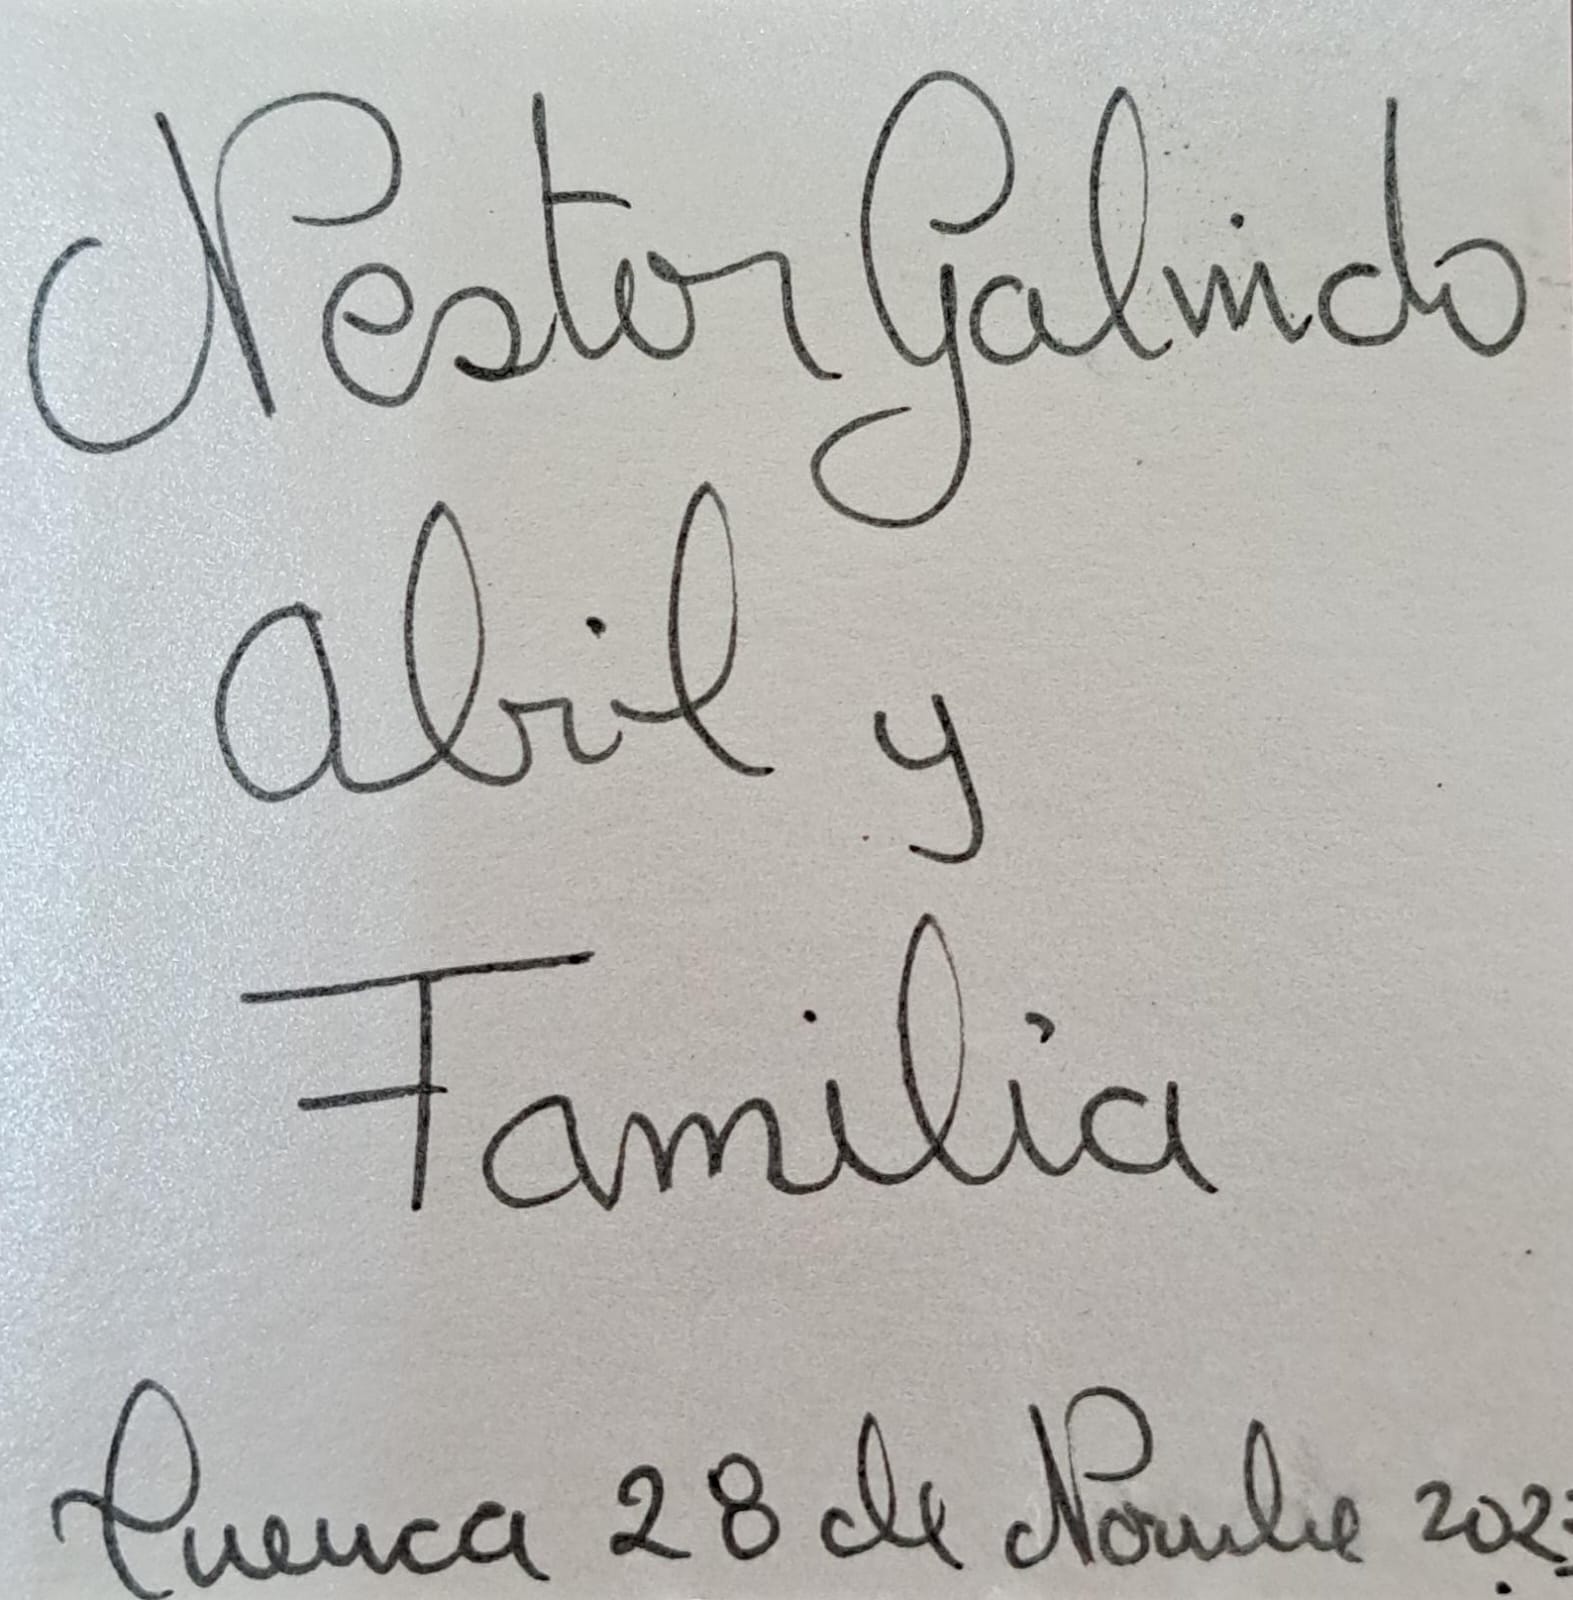 Nestor Galindo
Abril y
Familia
Cuenca 28 de Novembre 202